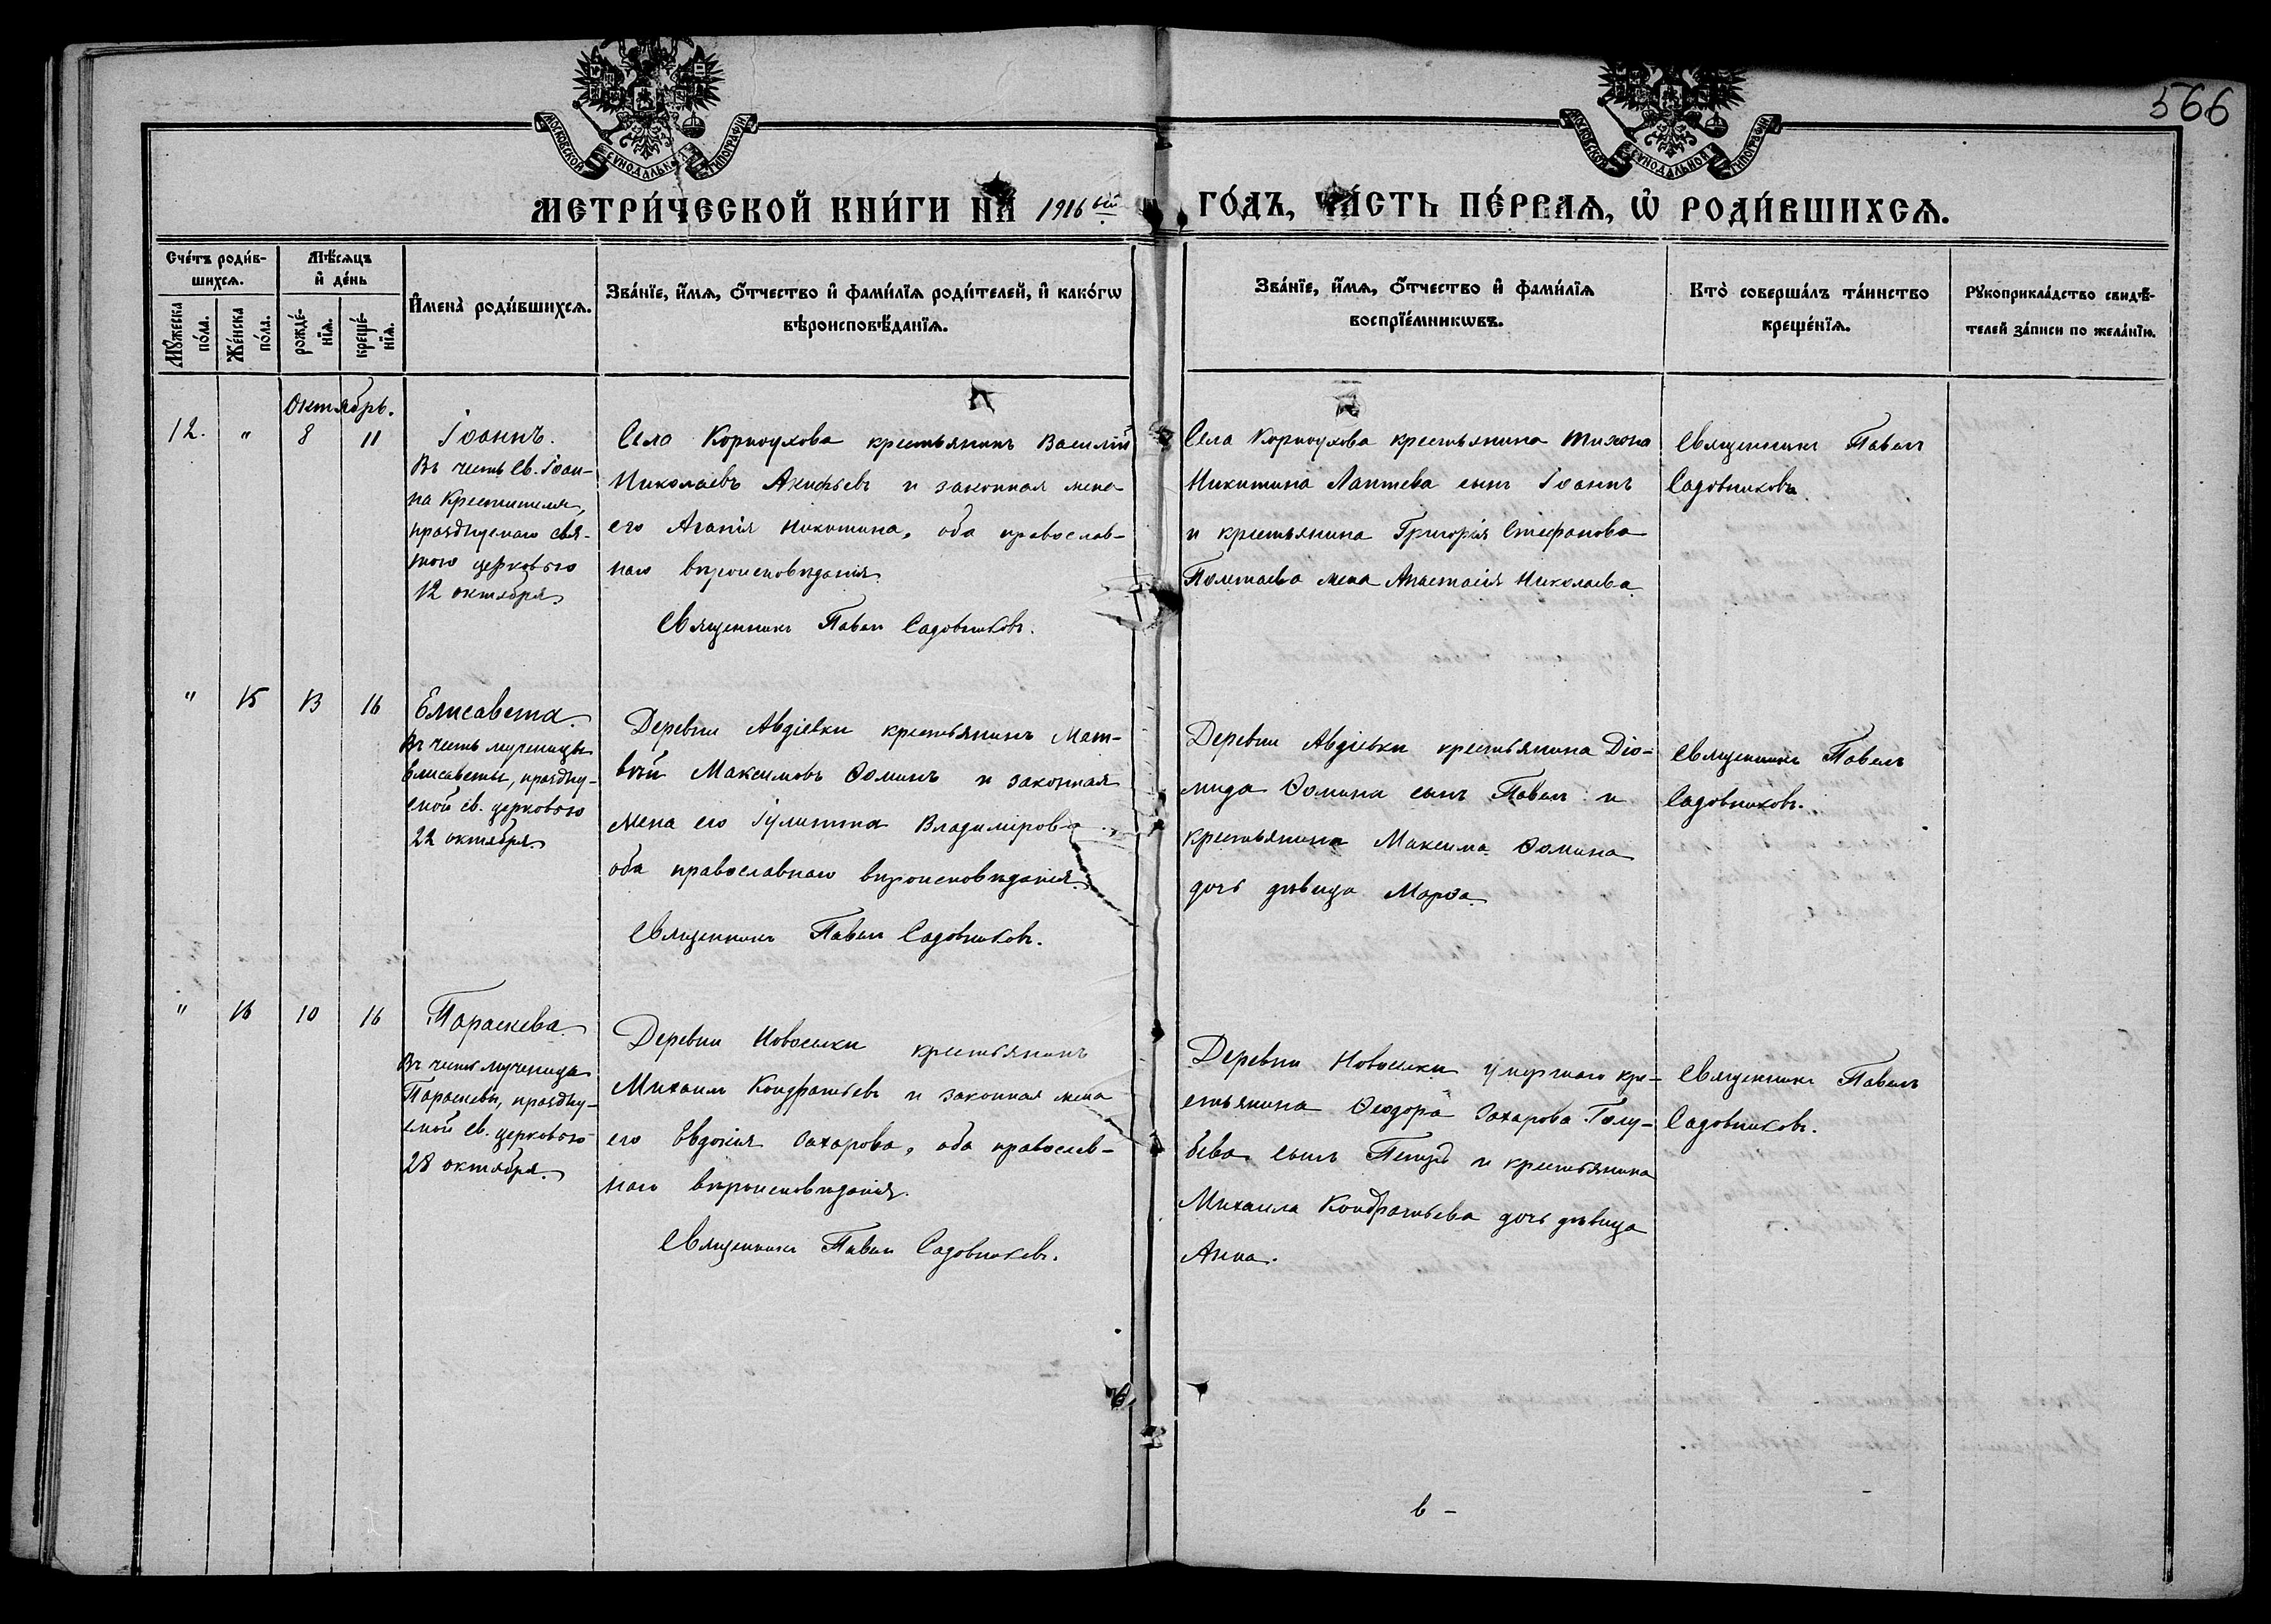 566
МОСКОВСКОЙ СѴНОДАЛЬНОЙ ТИПОГРАФІИ
МОСКОВСКОЙ СѴНОДАЛЬНОЙ ТИПОГРАФІИ
МЕТРИ́ЧЕСКОЙ КНИ́ГИ НА 1916 ый ГО́ДЪ, ЧА́СТЬ ПЕ́РВАѦ, Ѡ҆ РОДИ́ВШИХСѦ.
Сче́тъ роди́в-
шихсѧ.
Мѣ́сѧцъ
и҆ де́нь
Мꙋ́жеска
по́ла.
Же́нска
по́ла.
рожде́-
нїѧ.
креще́-
нїѧ.
И҆мена̀ роди́вшихсѧ.
Зва́нїе, и҆́мѧ, ѻ҆́тчество и҆ фами́лїѧ роди́телей, и҆ како́гѡ
вѣроисповѣ́данїѧ.
Зва́нїе, и҆́мѧ, ѻ҆́тчество и҆ фами́лїѧ
воспрїе́мникѡвъ.
Кто̀ соверша́лъ та́инство
креще́нїѧ.
Рꙋкоприкла́дство свидѣ́-
телей за́писи по жела́нїю.
Октябрь.
12. " 8 11
Іоаннъ.
Въ честь Св. Іоан-
на Крестителя,
празднуемаго свя-
тою церковью
12 октября.
Села Корноухова крестьянинъ Василій
Николаевъ Акифьевъ и законная жена
его Агапія Никитина, оба православ-
наго вѣроисповѣданія.
Священникъ Павелъ Садовниковъ.
Села Корноухова крестьянина Тихона
Никитина Лаптева сынъ Іоаннъ
и крестьянина Григорія Стефанова
Полетаева жена Анастасія Николаева
Священникъ Павелъ
Садовниковъ
" 15 13 16
Елисавета.
Въ честь мученицы
Елисаветы, праздну-
емой св. церковью
22 октября.
Деревни Авдіевки крестьянинъ Мат-
вѣй Максимовъ Ѳоминъ и законная
жена его Іулитта Владимірова,
оба православнаго вѣроисповѣданія.
Священникъ Павелъ Садовниковъ.
Деревни Авдіевки крестьянина Діо-
мида Ѳомина сынъ Павелъ и
крестьянина Максима Ѳомина
дочь дѣвица Марѳа.
Священникъ Павелъ
Садовниковъ.
" 16 10 16
Параскева.
Въ честь мученицы
Параскевы, праздну-
емой св. церковью
28 октября.
Деревни Новоселки крестьянинъ
Михаилъ Кондратьевъ и законная жена
его Евдокія Захарова, оба православ-
наго вѣроисповѣданія.
Священникъ Павелъ Садовниковъ.
Деревни Новоселки умершаго кре-
стьянина Ѳеодора Захарова Голу-
бева сынъ Петръ и крестьянина
Михаила Кондратьева дочь дѣвица
Анна.
Священникъ Павелъ
Садовниковъ.